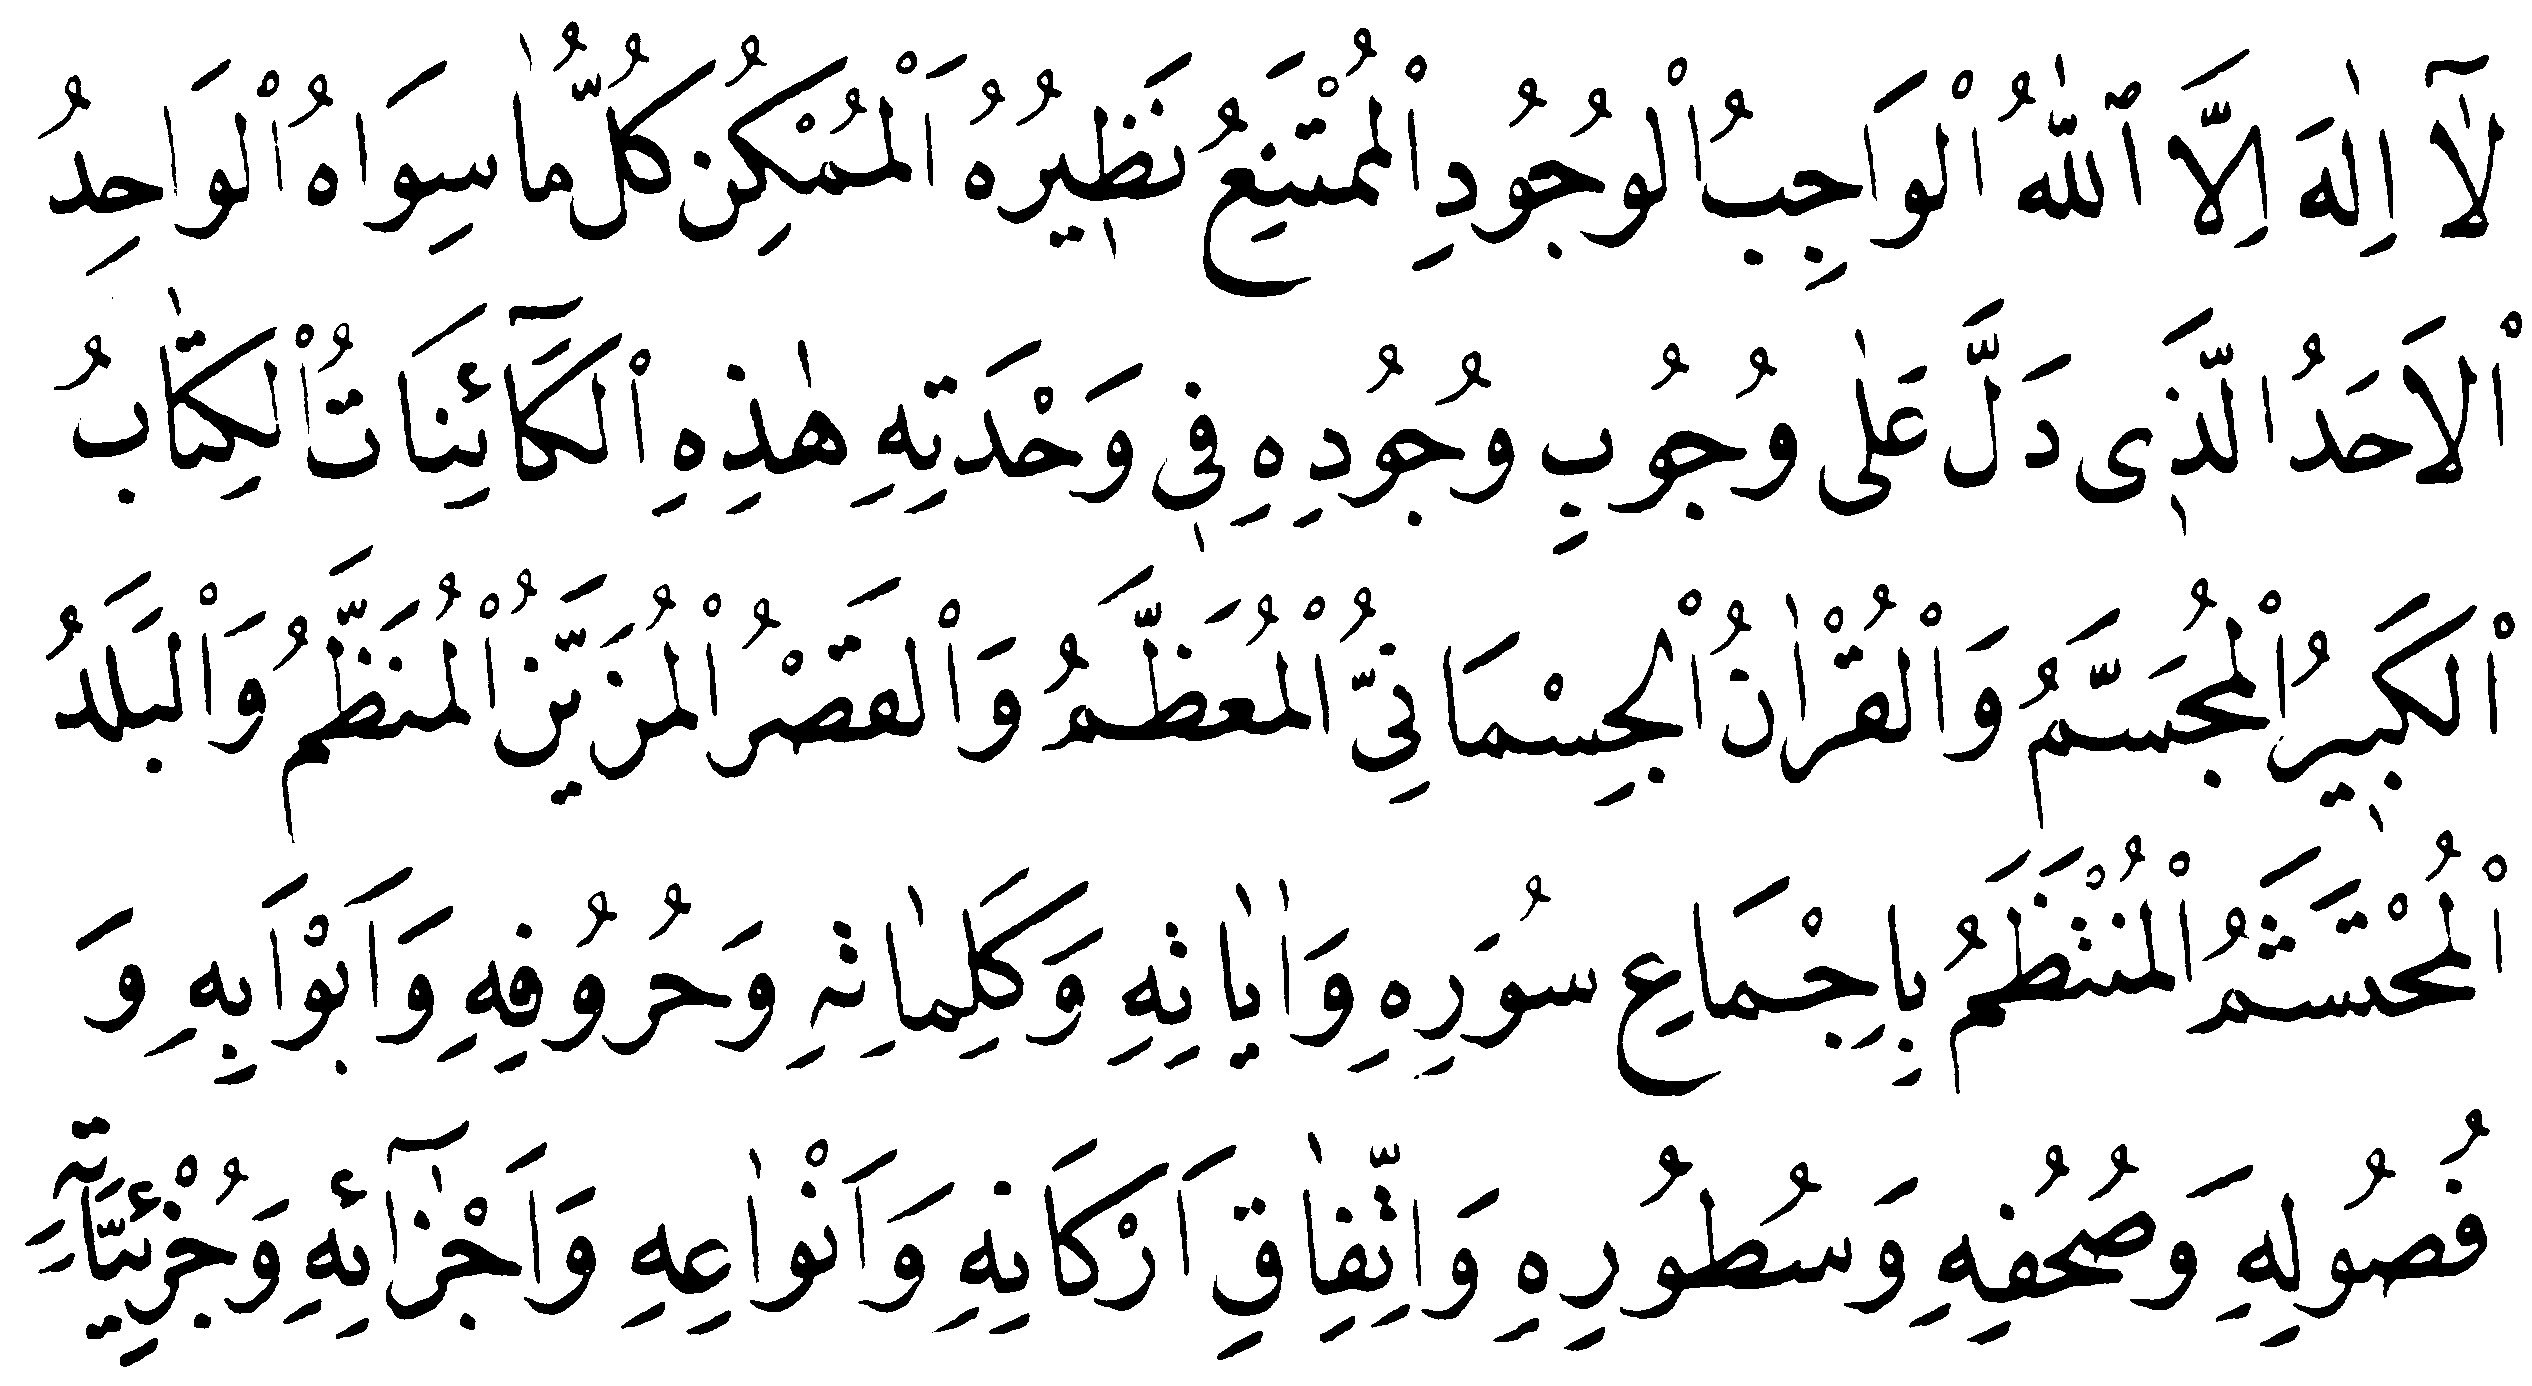 لَٓا اِلٰهَ اِلَّا ٱللّٰهُ اْلوَاجِبُ اْلوُجُودِ اْلمُمْتَنِعُ نَظ۪يرُهُ اَلْمُمْكِنُ كُلُّ مٰا سِوَاهُ اْلوَاحِدُ
اْلاَحَدُ الَّذ۪ى دَلَّ عَلٰى وُجُوبِ وُجُودِهِ ف۪ى وَحْدَتِهِ هٰذِهِ اْلكَٓائِنَاتُ اْلكِتٰابُ
اْلكَب۪يرُ اْلمُجَسَّمُ وَاْلقُرْاٰنُ اْلجِسْمَانِىُّ اْلمُعَظَّمُ وَاْلقَصْرُ اْلمُزَيَّنُ اْلمُنَظَّمُ وَاْلبَلَدُ
اْلمُحْتَشَمُ اْلمُنْتَظَمُ بِاِجْمَاعِ سُوَرِهِ وَاٰيٰاتِهِ وَكَلِمٰاتِهِ وَحُرُوفِهِ وَاَبْوَابِهِ وَ
فُصُولِهِ وَصُحُفِهِ وَسُطُورِهِ وَاتِّفٰاقِ اَرْكَانِهِ وَاَنْوٰاعِهِ وَاَجْزٰٓائِهِ وَجُزْئِيَّاتِهِ